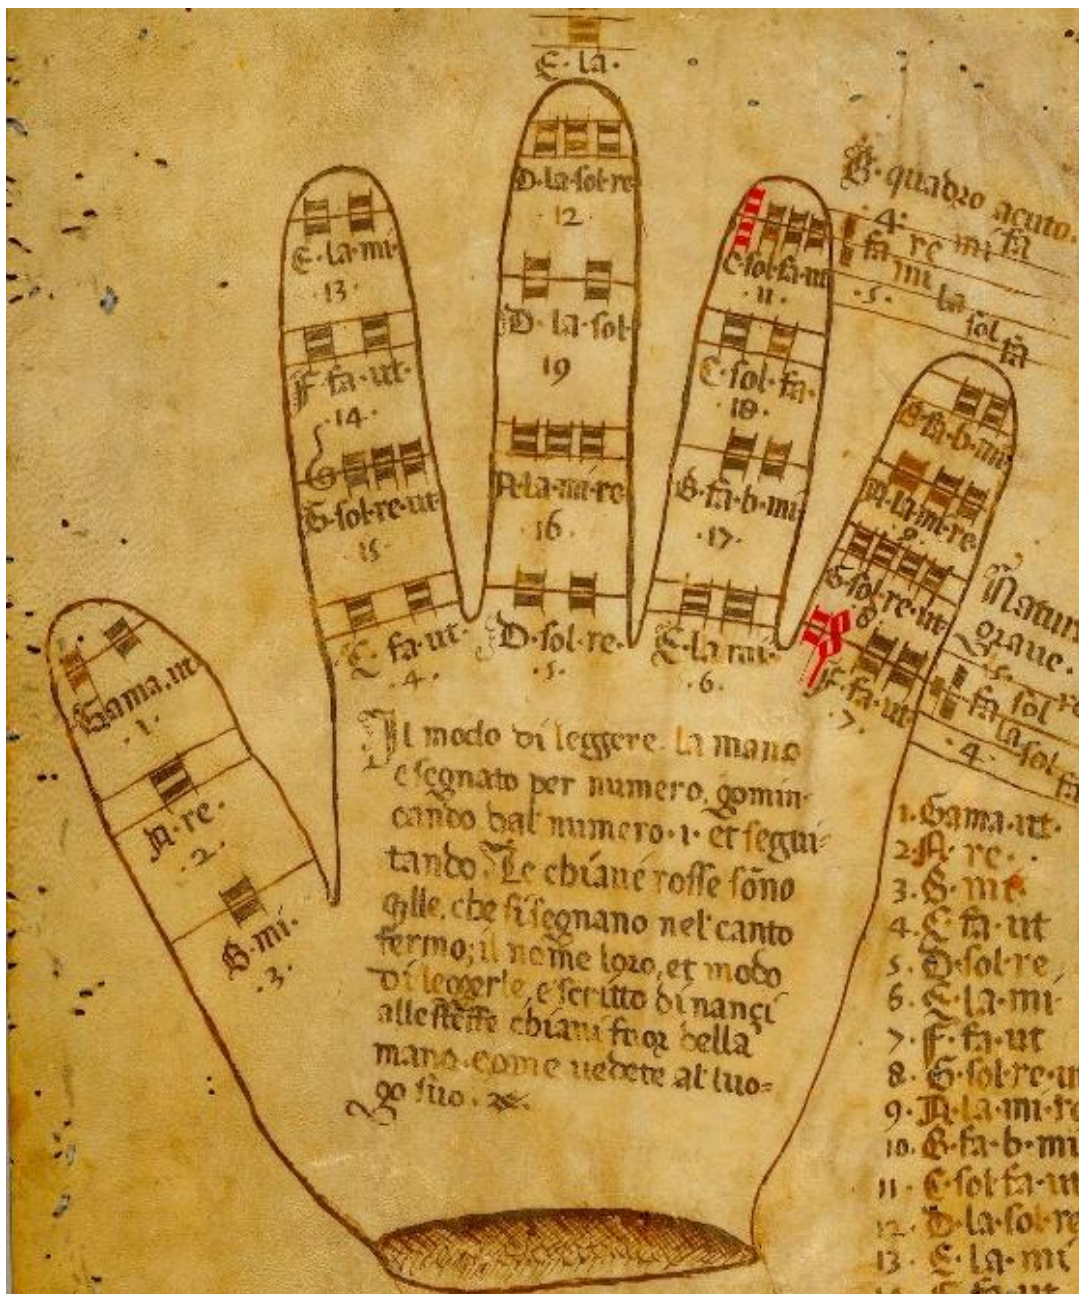 E·la·
D·la·sol·re
·12·
D·la·sol·
19
A·la·mi·re
16
D·sol·re·
·5·
E·la·mi·
·13·
F·fa·ut·
·14·
G
G·sol·re·ut
·15·
C·fa·ut·
·4·
C·sol·fa·ut
·11·
C·sol·fa·
·18·
B·fa·b·mi
·17·
E·la·mi·
·6·
B·quadro acuto·
·4·
fa re mi fa
·5·
mi la sol fa
B·fa·b·mi
A·la·mi·re
·9·
G·sol·re·ut
·8·
F·fa·ut·
·7·
Natur
graue·
·5·
fa sol re
·4·
la sol fa
Gama·ut
·1·
A·re·
·2·
B·mi·
·3·
Il modo di leggere la mano
e segnato per numero, gomin-
cando dal numero·1· et segui-
tando. Le chiaue rosse sono
qlle, che si segnano nel canto
fermo; il nome loro, et modo
di legger'le, e scritto dinançi
alle stesse chiaui fuor della
mano come uedete al luo-
go suo.
1·Gama·ut·
2·A·re·
3·B·mi·
4·C·fa·ut
5·D·sol·re
6·E·la·mi·
7·F·fa·ut
8·G·sol·re·u
9·A·la·mi·re
10·B·fa·b·mi
11·C·sol·fa·ut
12·D·la·sol·re
13·E·la·mi
14·F·fa·ut